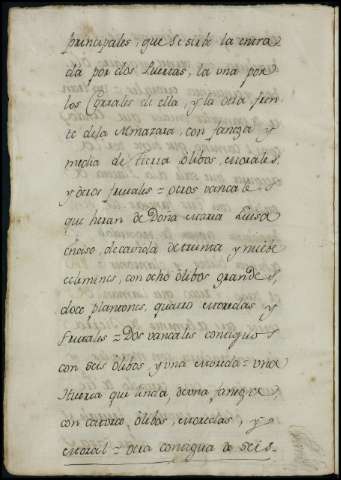 principales, que se sirbe la entra
da por dos Puertas, la una por
los Corrales de ella, y la otra fren
te de la Almazara, con fanega y
media de tierra Olibos, morales,
y otros frutales = otros vancales
que heran de Doña Maria Luisa
de cavida de treinta y nuebe
celemines, con ocho olibos grandes,
doce plantones, quatro moredas y
frutales = Dos vancales contiguos
con seis olibos y una moreda = una
Huerta que linda, de una fanega,
con catorce olibos, moredas, y
moral = otra contigua de seis